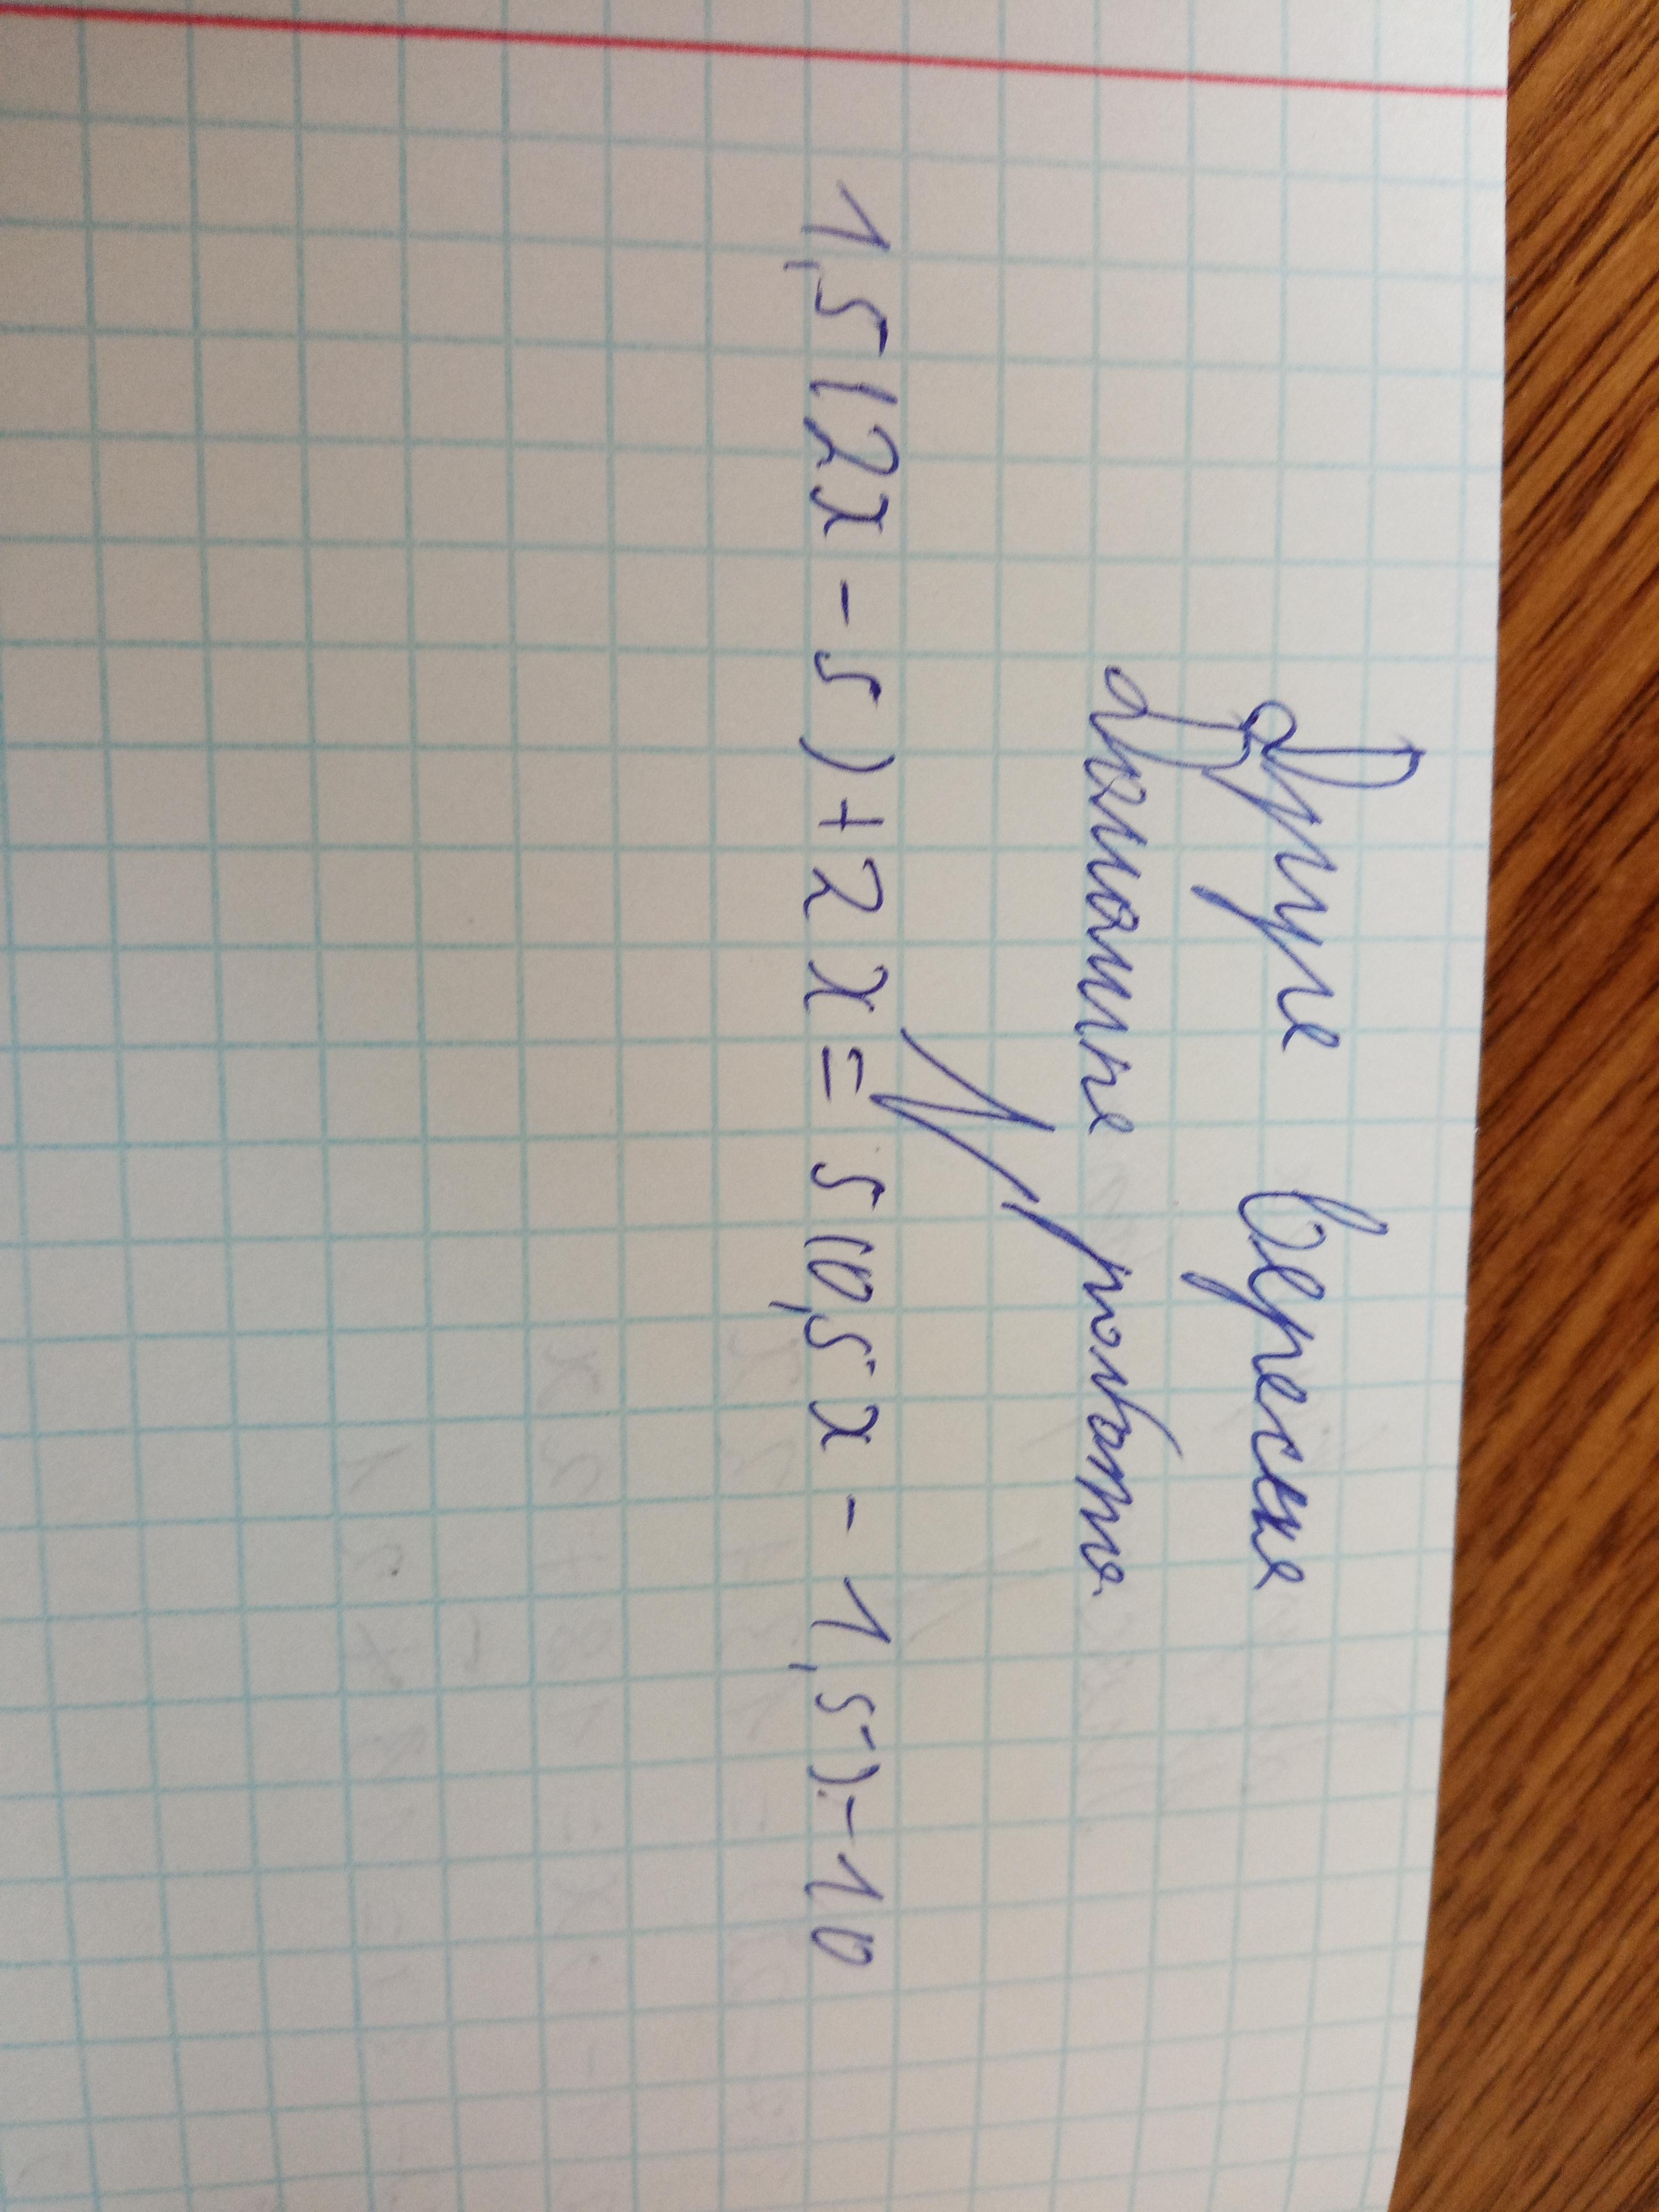 Друге вересня
Домашня робота
№1
1,5(2x - 5) + 2x = 5(0,5x - 1,5) - 10